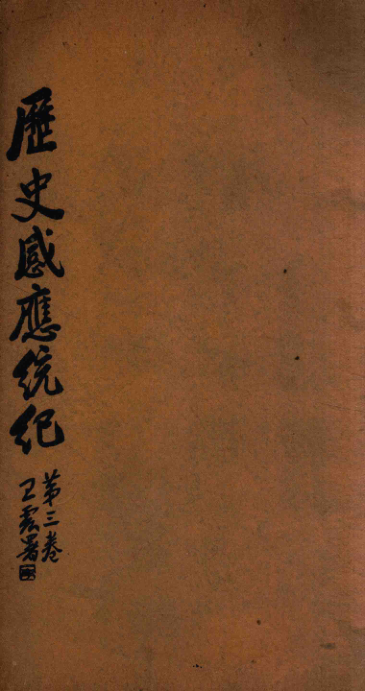 歷史感應統紀
第三卷
王震署